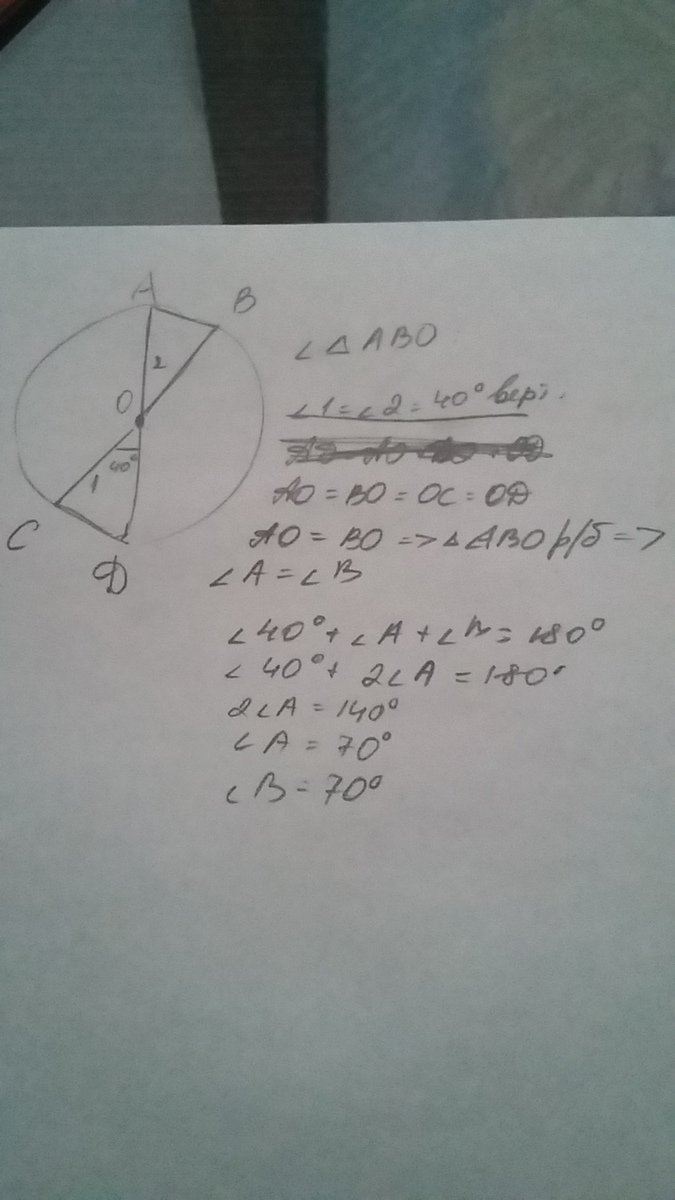 A
B
2
O
40°
1
C
D
∠ △ ABO
∠1 = ∠2 = 40° верт.
AO = BO = OC = OD
AO = BO => △ ABO р/б =>
∠A = ∠B
∠40° + ∠A + ∠B = 180°
∠40° + 2∠A = 180°
2∠A = 140°
∠A = 70°
∠B = 70°